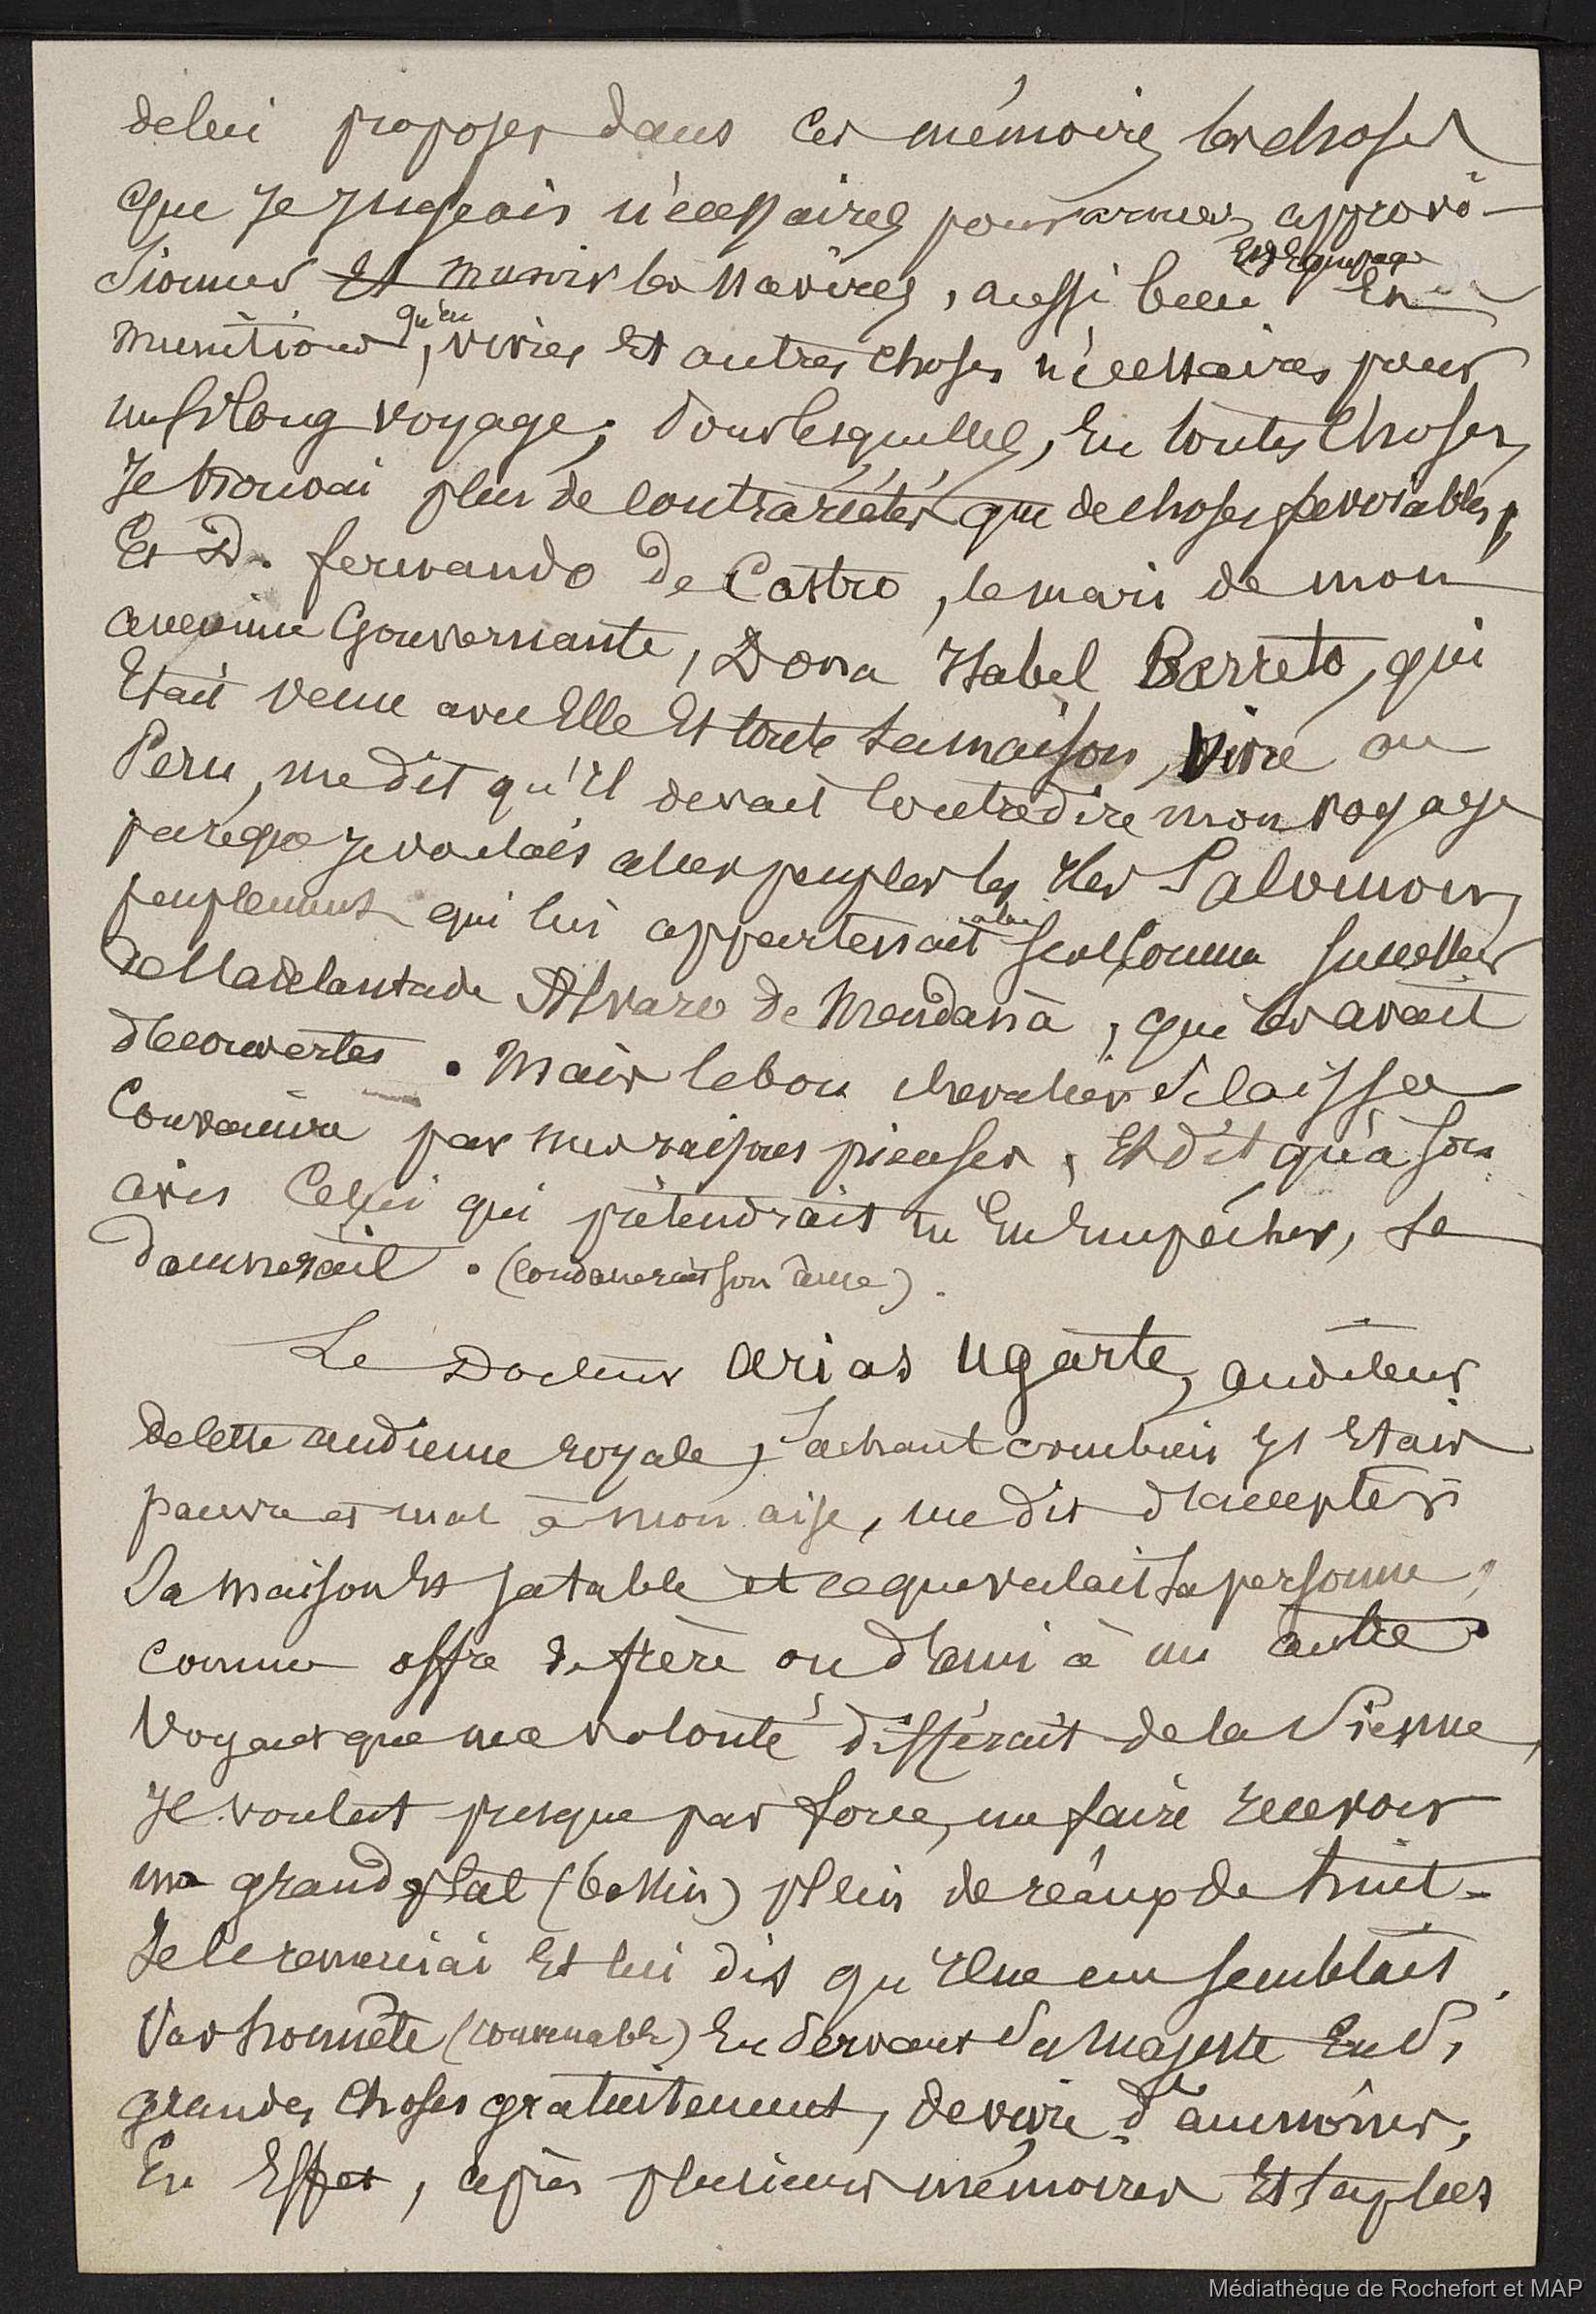 de lui proposer dans ces mémoires les choses
que je jugeais nécessaires pour armer, approvi-
sionner et munir les navires, aussi bien en Equipage
munitions, qu'en vivres et autres choses nécessaires pour
un si long voyage; dans lesquelles, En toutes choses,
Je trouvai plus de contrariétés que de choses favorables,
Et D. fernando De Castro, le mari de mon
ancienne Gouvernante, Dona Isabel Barreto, qui
Etait venu avec Elle Et toute sa maison, vivre au
Peru, me dit qu'Il devait contredire mon voyage
parce que Je voulais aller peupler les Iles Salomon,
peuplement qui lui appartenait à lui seul comme successeur
de l'adelantade Alvaro de Mendana, qui les avait
découvertes. Mais le bon chevalier se laissa
Convaincre par mes raisons pieuses, Et dit qu'à son
avis Celui qui prétendrait m'En Empêcher, se
damnerait. (condamnerait son âme).
Le Docteur arias Ugarte, auditeur
de cette audience royale, sachant combien J'Etais
pauvre et mal à mon aise, me dit d'accepter
Sa maison Et sa table et ce que valait sa personne,
comme offre de frère ou d'ami à un autre.
Voyant que ma volonté différait de la Sienne,
Il voulut presque par force, me faire recevoir
un grand plat (bassin) plein de réaux de huit-
Je le remerciai Et lui dis qu'Il ne me semblait
pas honnête (convenable) En servant Sa Majesté En Si
grandes choses gratuitement, de vivre d'aumônes,
En Effet, après plusieurs mémoires Et
Médiathèque de Rochefort et MAP